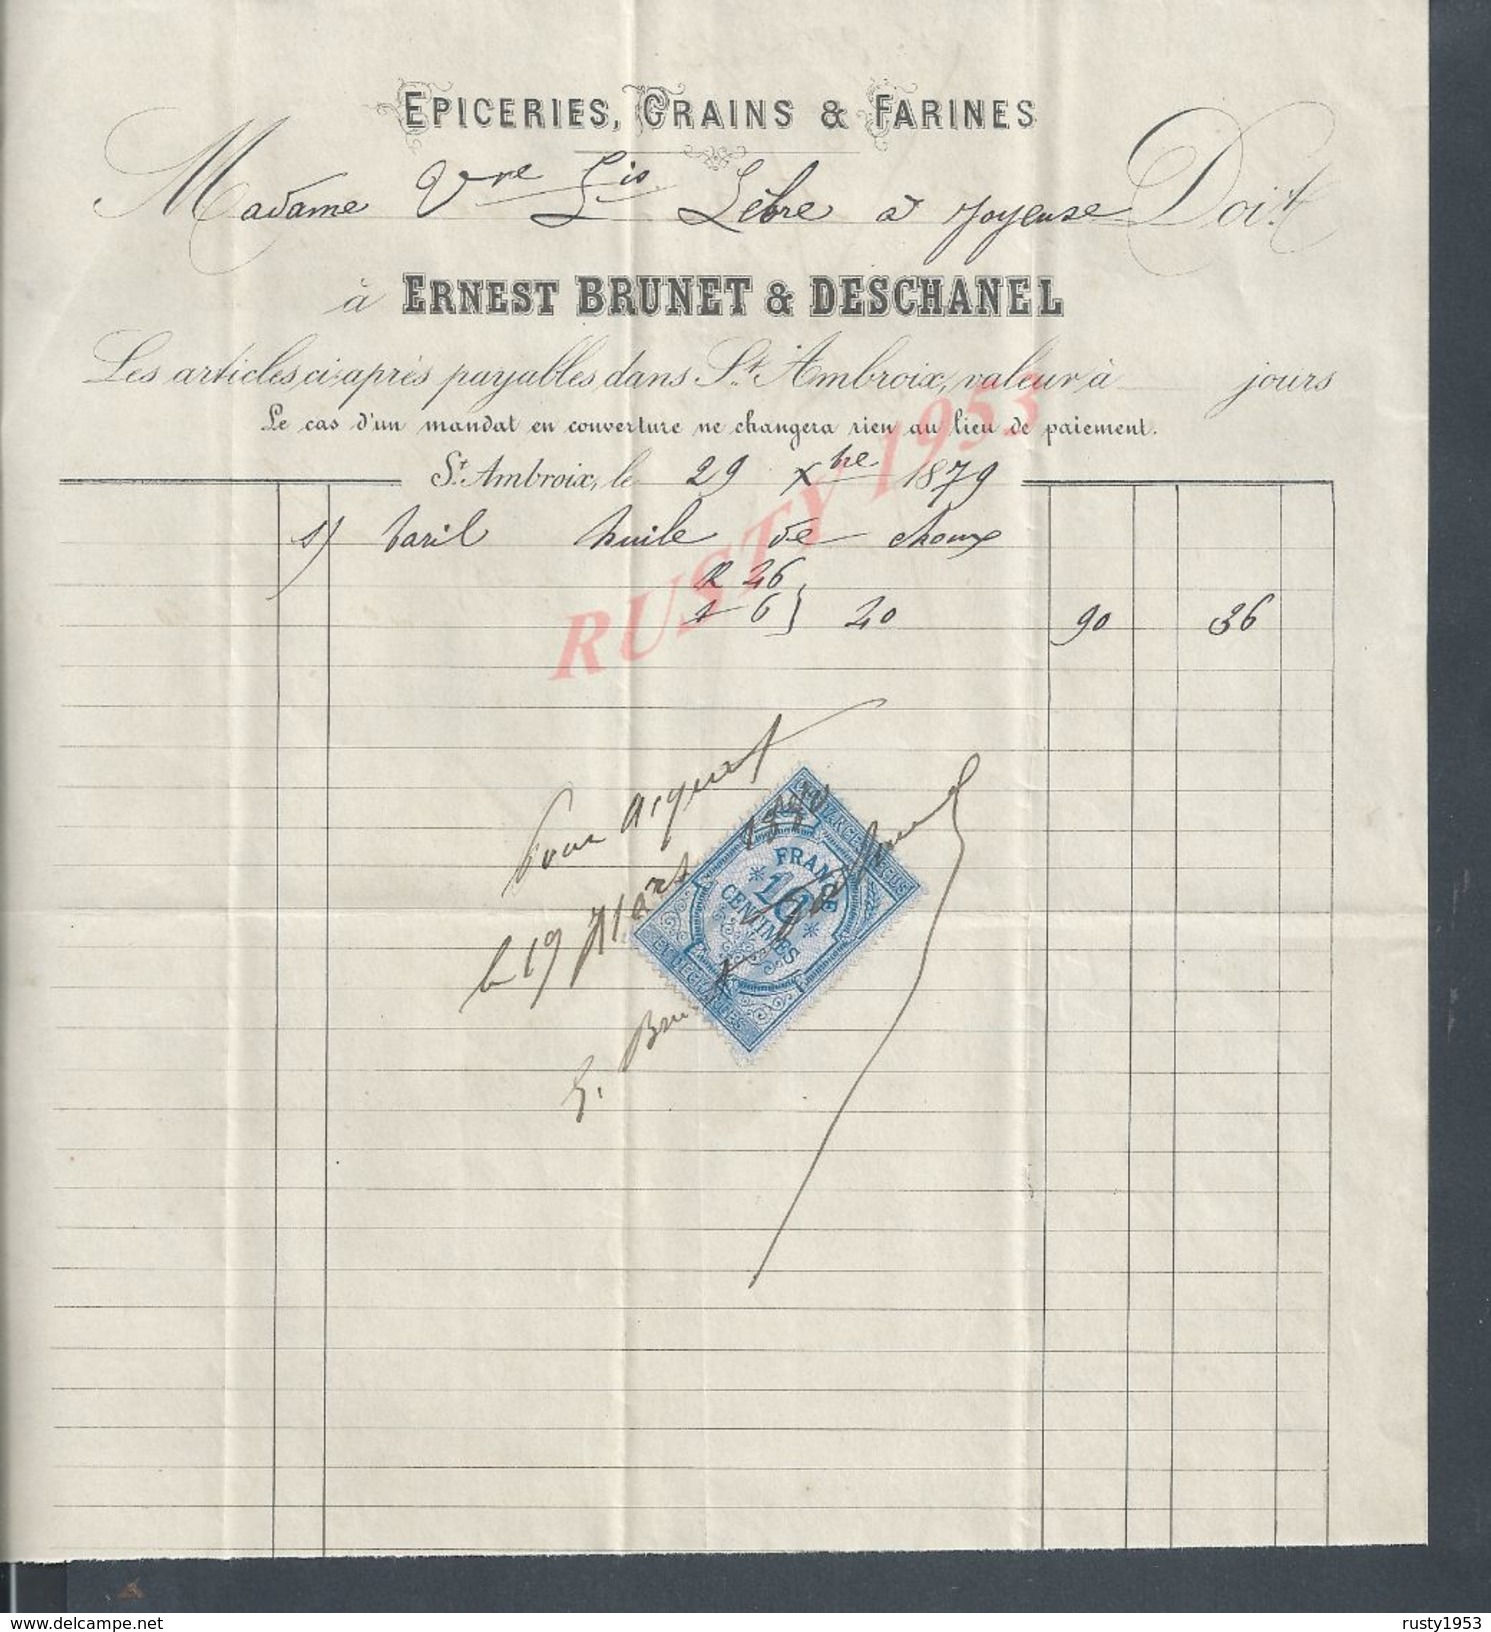 EPICERIES, GRAINS & FARINES
Madame Vve Lis Lèbre à Joyeuse Doit
à ERNEST BRUNET & DESCHANEL
Les articles ci-après payables dans St. Ambroix, valeur à jours
Le cas d'un mandat en couverture ne changera rien au lieu de paiement.
St. Ambroix, le 29 Xbre 1879
1/ baril huile de choux
B 26
t 6 } 20 90 36
Pour acquit
le 19 Mars 18
E. Bru
QUITTANCES REÇUS
FRANCE
10
CENTIMES
ET DECHARGES
RUSTY1953
rusty1953